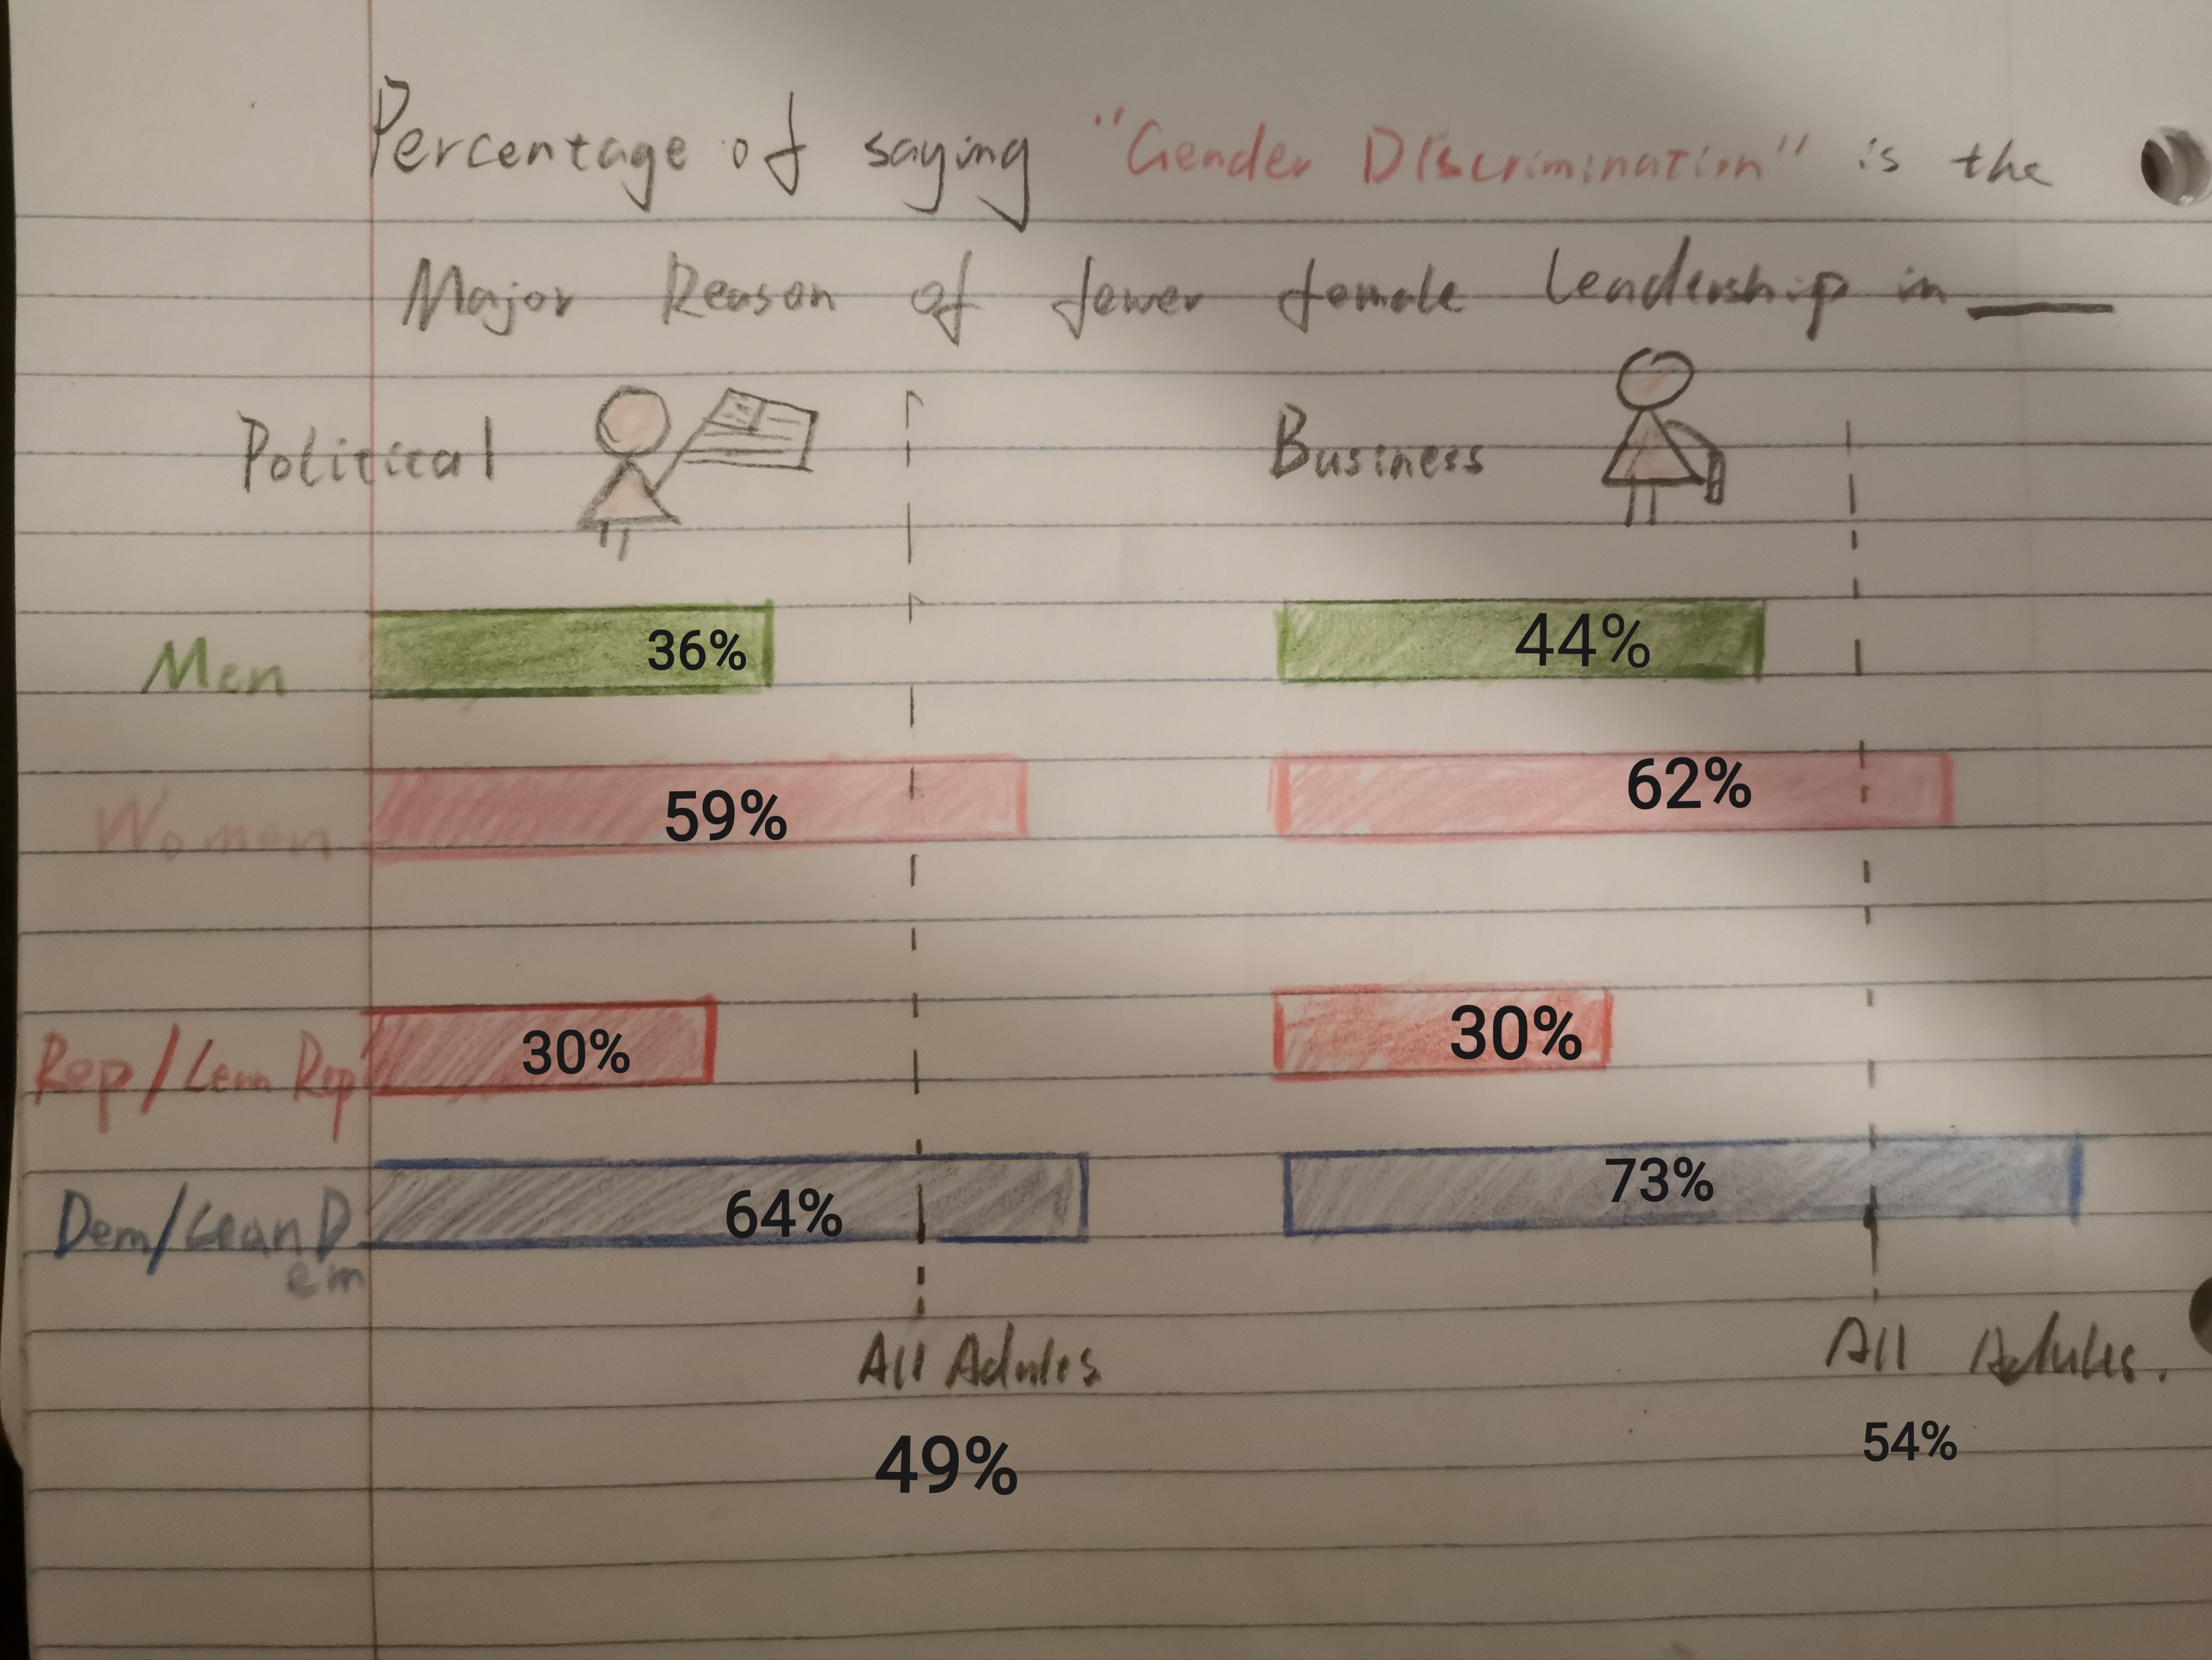 Percentage of saying "Gender Discrimination" is the
Major Reason of fewer female leadership in ____
Political
Business
Men 36% 44%
Women 59% 62%
Rep/Lean Rep 30% 30%
Dem/Lean D 64% 73%
em
All Adults All Adults.
49% 54%